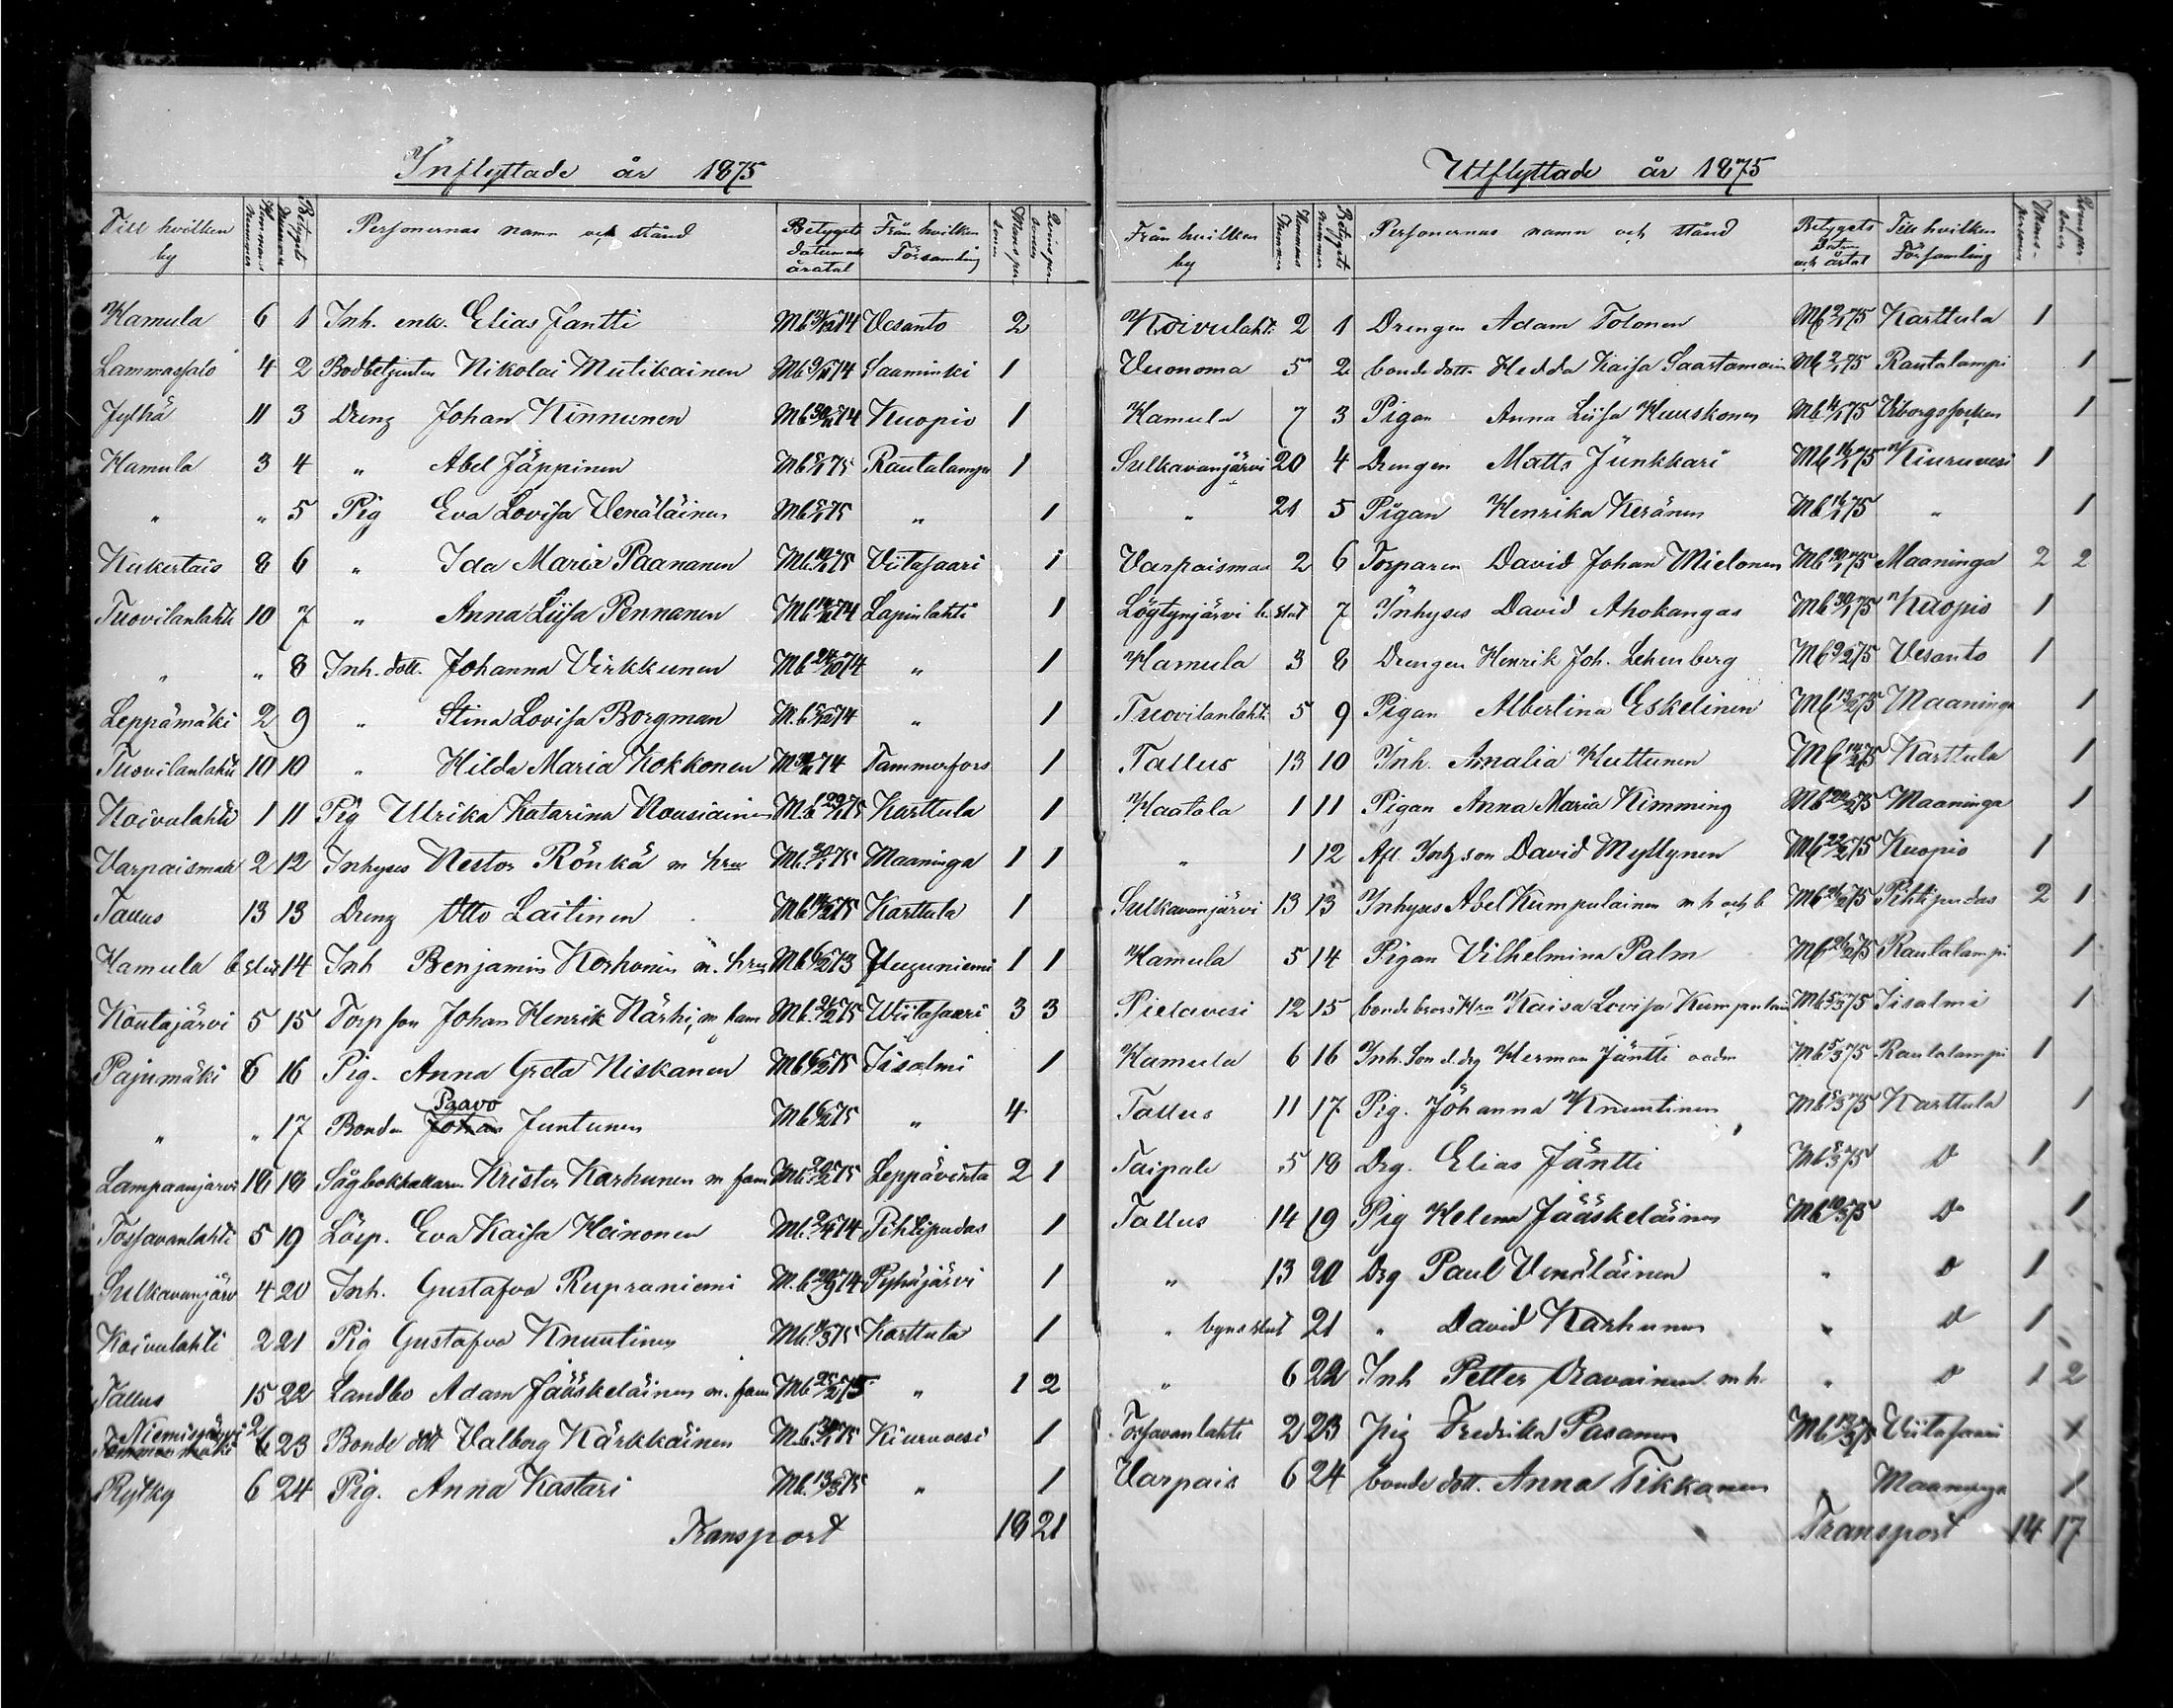 Inflyttade år 1875
Till hvilken by | Hemmans nummer | Betygets nummer | Personernas namn och stånd | Betygets datum och åratal | Från hvilken Församling | Mans personer | Qvins personer
Hamula 6 1 Inh. enk. Elias Jantti Mb 74 Vesanto 2
Lammassalo 4 2 Bodbetjenten Nikolai Mutikainen Mb 74 Saaminki 1
Jylhä 11 3 Dreng Johan Kinnunen Mb 74 Kuopio 1
Hamula 3 4 " Abel Jäppinen Mb 75 Rautalampi 1
" " 5 Pig Eva Lovisa Venäläinen Mb 75 " 1
Kukertais 8 6 " Ida Maria Paananen Mb 75 Viitasaari 1
Tuovilanlahti 10 7 " Anna Liisa Pennanen Mb 74 Lapinlahti 1
" " 8 Inh. dott. Johanna Virkkunen Mb 24/10 74 " 1
Leppämäki 2 9 " Stina Lovisa Borgman M.b 74 " 1
Tuovilanlahti 10 10 " Hilda Maria Kokkonen M 74 Tammerfors 1
Koivulahti 1 11 Pig Ulrika Katarina Nousiainen M.b 75 Karttula 1
Varpaismaa 2 12 Inhyses Nestor Rönkä m hru Mb. 75 Maaninga 1 1
Tallus 13 13 Dreng Otto Laitinen Mb 75 Karttula 1
Hamula b slut 14 Inh Benjamin Korhonen m. hru Mb 73 Pluguniemi 1 1
Koutajärvi 5 15 Torp son Johan Henrik Kärhi, m fam Mb. 75 Wiitasaari 3 3
Pajumäki 6 16 Pig. Anna Greta Niskanen Mb 75 Iisalmi 1
" " 17 Bonden Paavo Juntunen Mb 75 " 4
Lampaanjärvi 18 18 Sågbokhållaren Krister Karhunen m fam Mb. 75 Leppävirta 2 1
Tossavanlahti 5 19 Lösp. Eva Kaisa Hainonen Mb. 74 Pihtipudas 1
Sulkavanjärv 4 20 Inh. Gustafva Rupraniemi M.b 74 Pyhäjärvi 1
Koivulahti 2 21 Pig Gustafva Knuutinen Mb. 75 Karttula 1
Tallus 15 22 Landbo Adam Jääskeläinen m. fam Mb 75 " 1 2
Niemisjärvi 2 23 Bonde dott Valborg Kärkkäinen M.b. 75 Kiuruvesi 1
Rytky 6 24 Pig. Anna Kastari Mb. 13/3 75 " 1
Transport 18 21
Utflyttade år 1875
Från hvilken by | Hemmans Nummer | Betygets nummer | Personernas namn och stånd | Betygets datum och årtal | Till hvilken Församling | Mans-personer | Qvins personer
Koivulaht. 2 1 Drengen Adam Tolonen Mb 2/1 75 Karttula 1
Vuonoma 5 2 bonde dottr Hedda Kaisa Saastamoin Mb 2/1 75 Rautalampi 1
Hamula 7 3 Pigan Anna Liisa Huuskonen Mb 4/1 75 Viborgs socken 1
Sulkavanjärvi 20 4 Drengen Matts Junkkari Mb 16/1 75 Kiuruvesi 1
" 21 5 Pigan Henrika Keränen Mb 16/1 75 " 1
Varpaismaa 2 6 Torparen David Johan Mielonen Mb 30/1 75 Maaninga 2 2
Lögtynjärvi b. slut 7 Inhyses David Ahokangas Mb 30/1 75 Kuopio 1
Hamula 3 8 Drengen Henrik Joh. Lehenberg Mb 9/2 75 Vesanto 1
Tuovilanlaht. 5 9 Pigan Albertina Eskelinen Mb 13/2 75 Maaninga 1
Tallus 13 10 Inh. Amalia Huttunen Mb 14/2 75 Karttula 1
Haatala 1 11 Pigan Anna Maria Kimming Mb 20/2 75 Maaninga 1
" 1 12 Afl. Inh son David Myllynen Mb 22/2 75 Kuopio 1
Sulkavanjärvi 13 13 Inhyses Abel Kumpulainen m h och b Mb 21/2 75 Pihtipudas 2 1
Hamula 5 14 Pigan Vilhelmina Palm Mb 21/2 75 Rautalampi 1
Pielavesi 12 15 bonde brors Hru Kaisa Lovisa Kumpulain Mb 5/3 75 Iisalmi 1
Hamula 6 16 Inh. Son d. drg Herman Jäntti Mb 5/3 75 Rautalampi 1
Tallus 11 17 Pig. Johanna Knuutinen Mb 5/3 75 Karttula 1
Taipale 5 18 Drg. Elias Jäntti Mb 5/3 75 D 1
Tallus 14 19 Pig Helena Jääskeläinen Mb 10/3 75 D 1
" 13 20 Drg Paul Venäläinen " D 1
" byns slut 21 " David Karhunen " D 1
" 6 22 Inh Petter Oravainen m h " D 1 2
Tossavanlahti 2 23 pig Fredrika Pasanen Mb 13/3 75 Viitasaari 1
Varpais 6 24 bonde dott. Anna Tikkanen " Maaninga 1
Transport 14 17